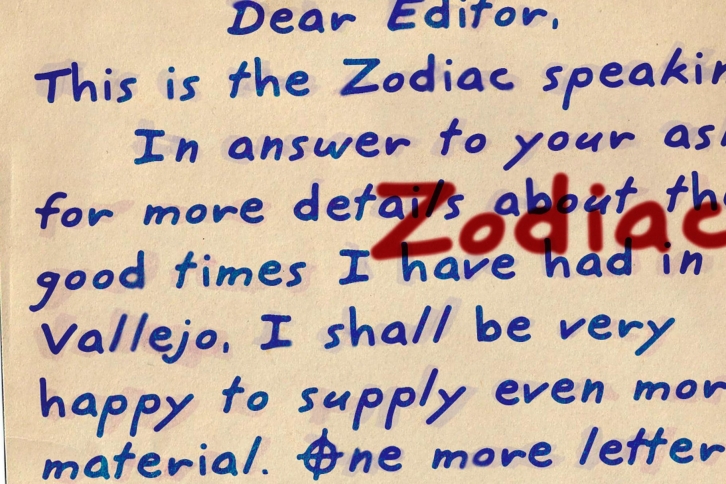 Dear Editor,
This is the Zodiac speakin
In answer to your as
for more details about the
Zodiac
good times I have had in
Vallejo, I shall be very
happy to supply even mor
material. One more letter